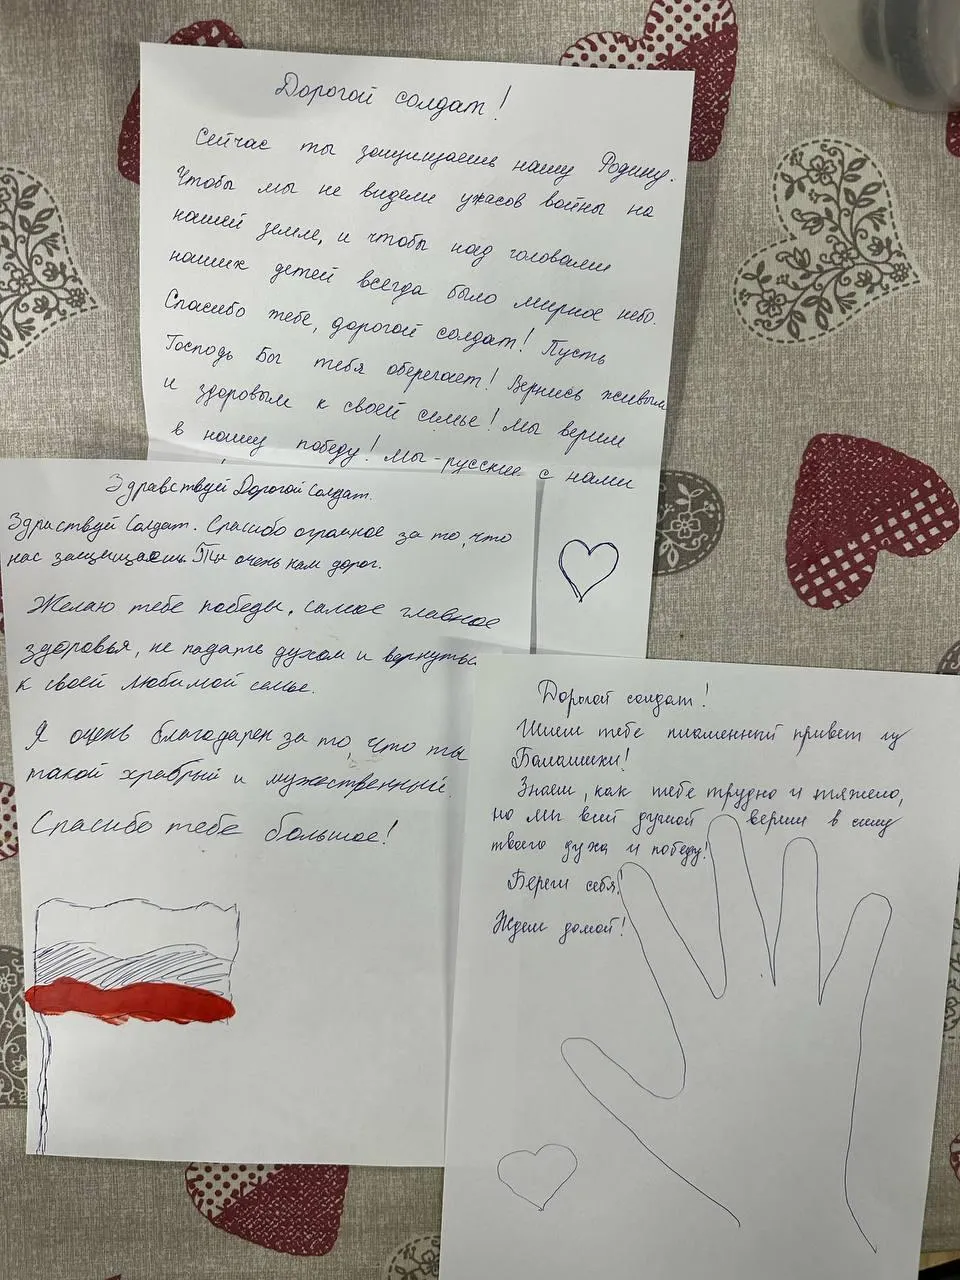 Дорогой солдат!
Сейчас ты защищаешь нашу Родину.
Чтобы мы не видели ужасов войны на
нашей земле, и чтобы над головами
наших детей всегда было мирное небо.
Спасибо тебе, дорогой солдат! Пусть
Господь Бог тебя оберегает! Вернись живым
и здоровым к своей семье! Мы верим
в нашу победу! Мы - русские с нами
Здравствуй Дорогой Солдат.
Здраствуй Солдат. Спасибо огромное за то, что
нас защищаешь. Ты очень нам дорог.
Желаю тебе победы, самое главное
здоровья, не падать духом и вернуться
к своей любимой семье.
Я очень благодарен за то, что ты
такой храбрый и мужественный.
Спасибо тебе большое!
Дорогой солдат!
Шлем тебе пламенный привет из
Балашихи!
Знаем, как тебе трудно и тяжело,
но мы всей душой верим в силу
твоего духа и победу!
Береги себя!
Ждем домой!